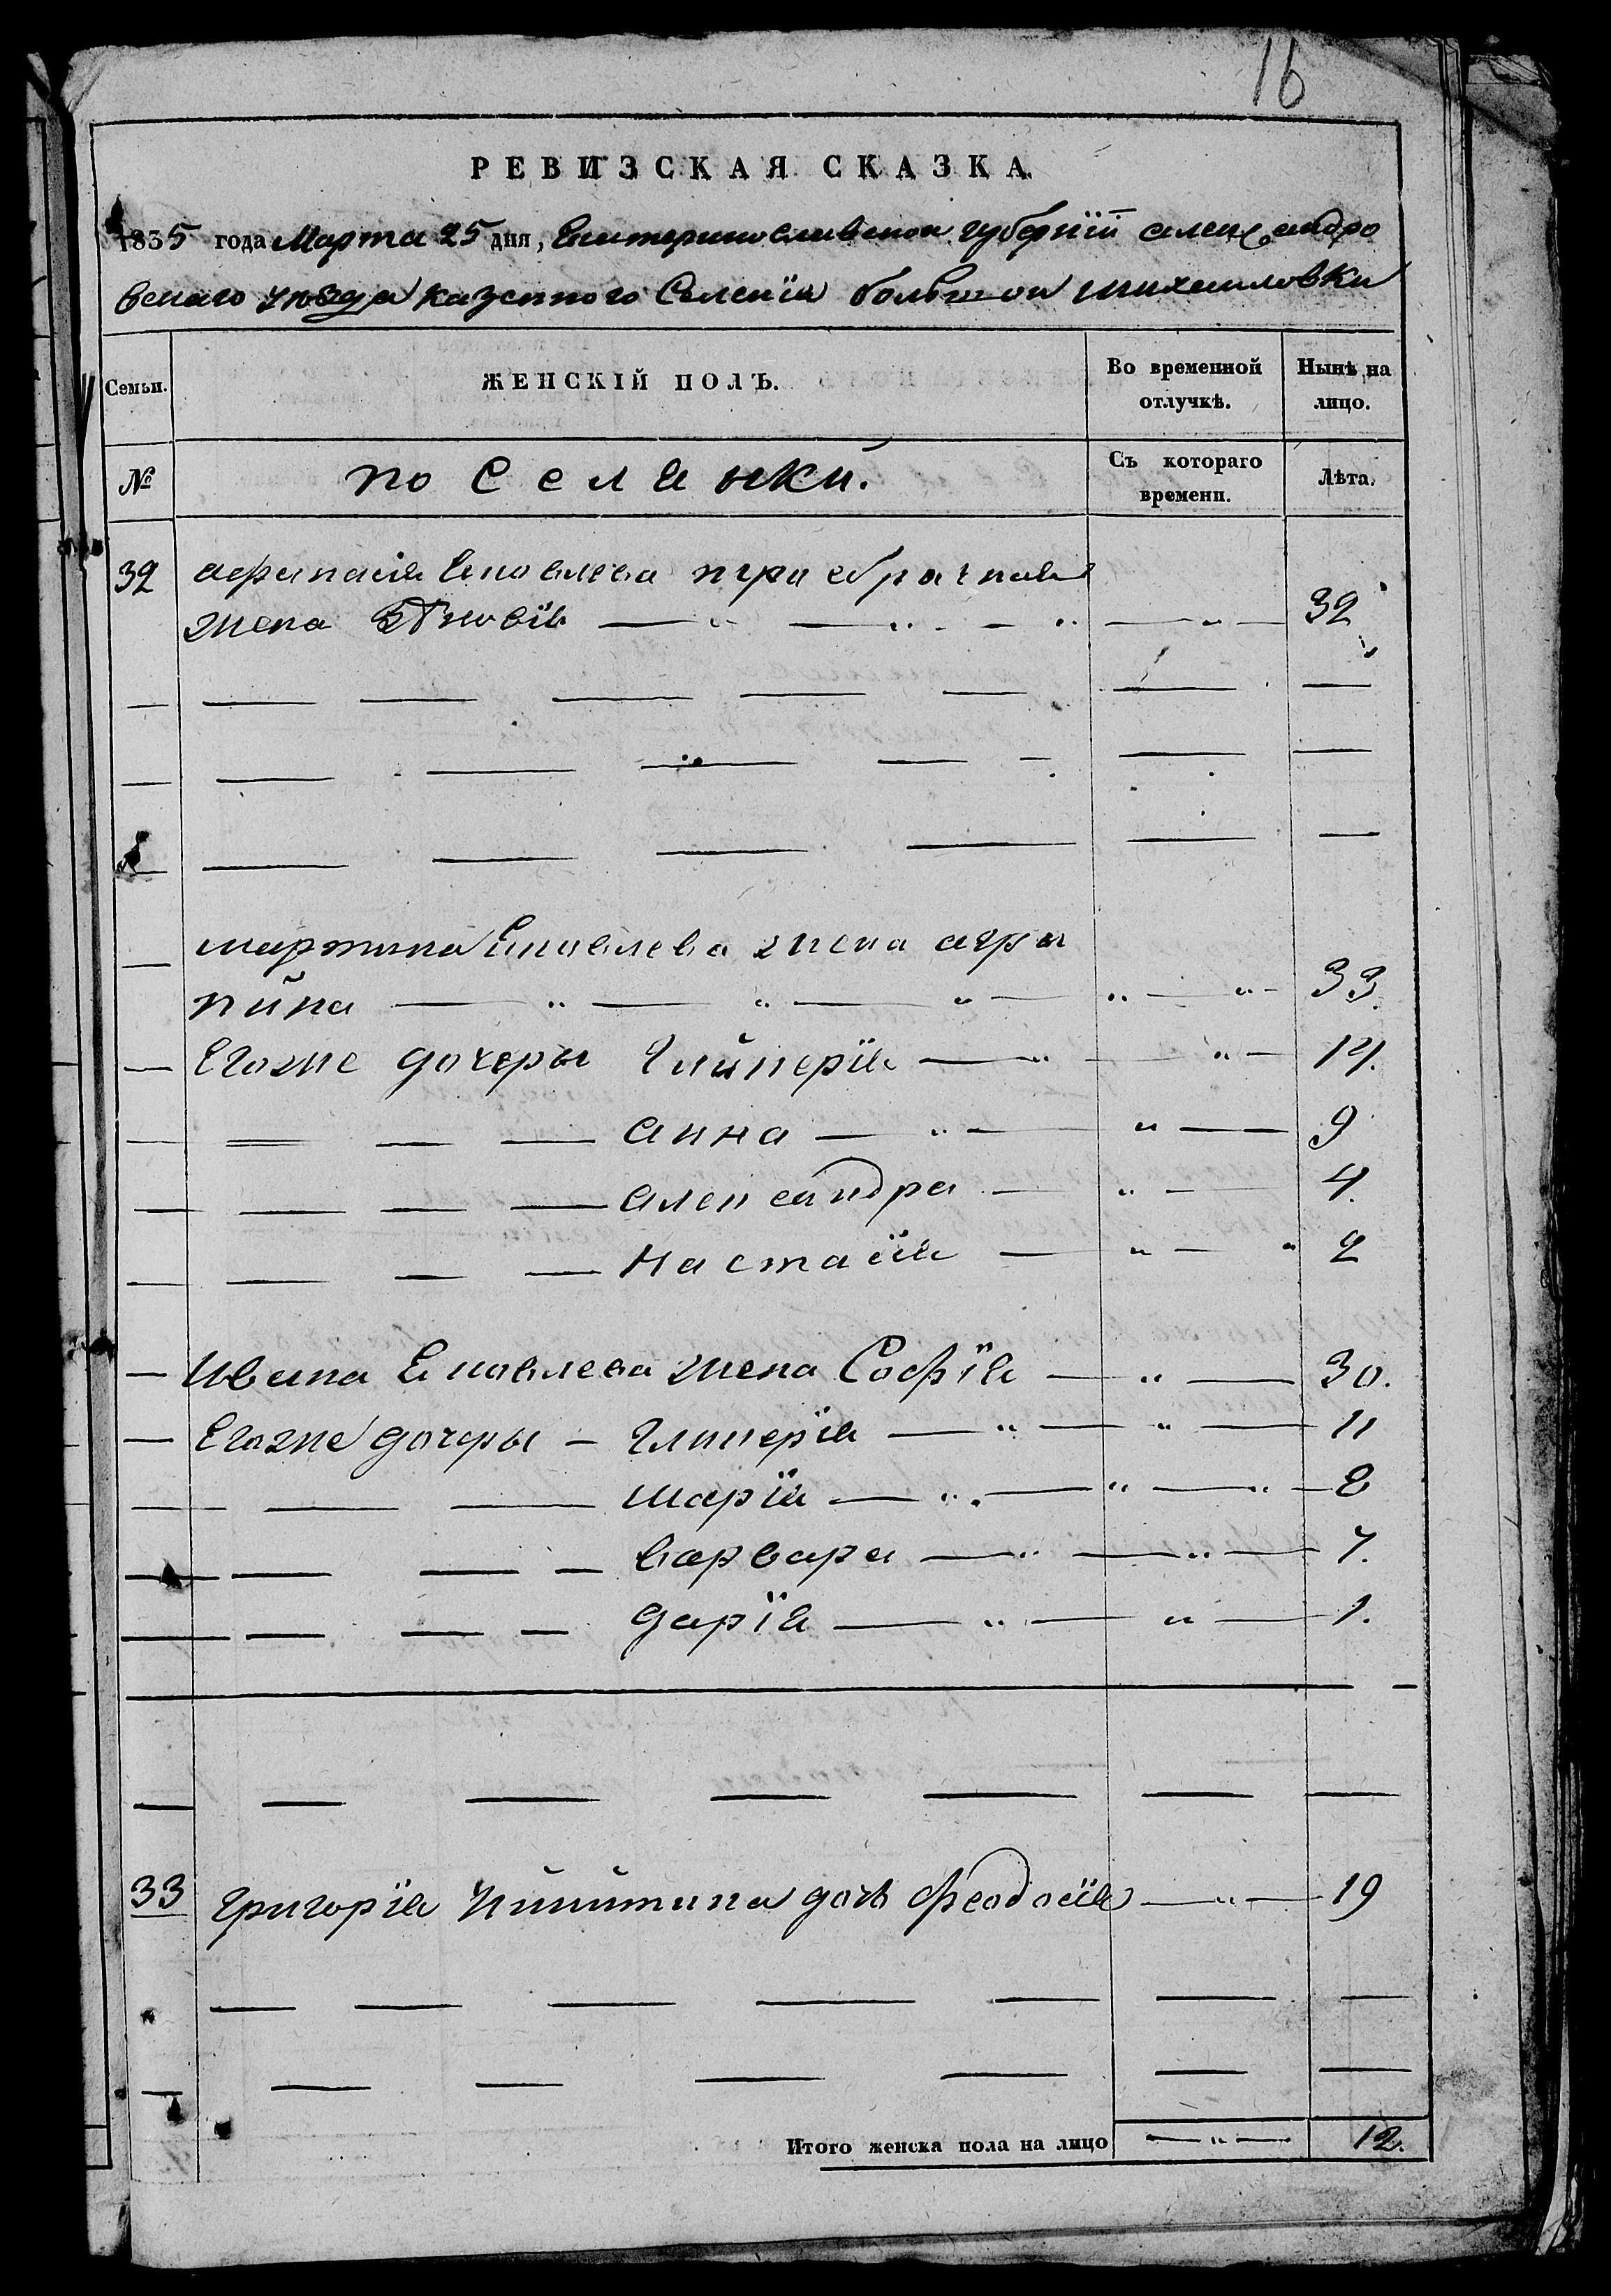 16
РЕВИЗСКАЯ СКАЗКА.
1835 года Марта 25 дня, Екатеринославской губернїи александро
вскаго уѣзда казенного Селенїя большой михайловки
Семьи.
ЖЕНСКІЙ ПОЛЪ.
Во временной отлучкѣ.
Нынѣ на лицо.
№
поселянки.
Съ котораго времени.
Лѣта.
32 афанасія Яковлева
жена Зѣновїя 32
мартина Яковлева жена агра
пина 33.
Егоже дочеры Гликерїя 14.
анна 9
александра 4.
Настасїя 2
Ивана Яковлева жена Софїя 30.
Егоже дочеры Гликерїя 11
марїя 8
варвара 7.
дарїя 1.
33 Григорїя Никитина дочь Феодосїя 19
Итого женска пола на лицо 12.